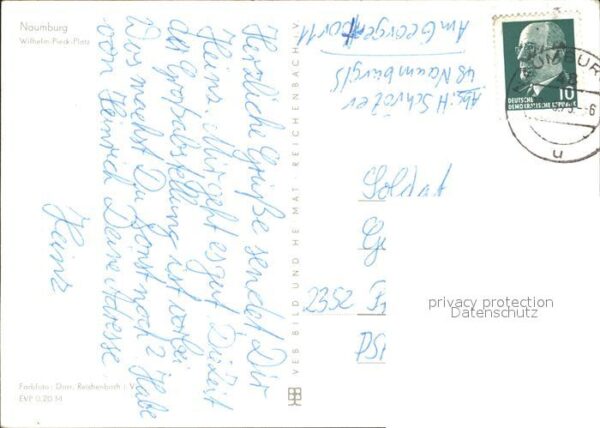 Naumburg
Wilhelm-Pieck-Platz
Herzliche Grüße sendet Dir
Heinz. Mir geht es gut. Die Zeit
der Großabstellung ist vorbei
Was machst Du sonst noch? Habe
von Heinrich Deine Adresse.
Heinz
Farbfoto: Darr, Reichenbach i. V.
EVP 0,20 M
VEB BILD UND HEIMAT REICHENBACH i. V.
Abs: H. Schröter
48 Naumburg/S
Am Georgentor 11
DEUTSCHE
DEMOKRATISCHE REPUBLIK
10
2352
privacy protection
Datenschutz